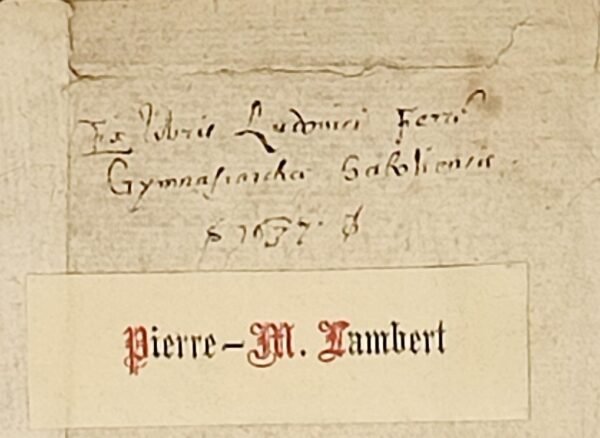 Ex libris Ludovici Ferri
Gymnasiarchæ Saboliensis.
1637.
Pierre-M. Lambert